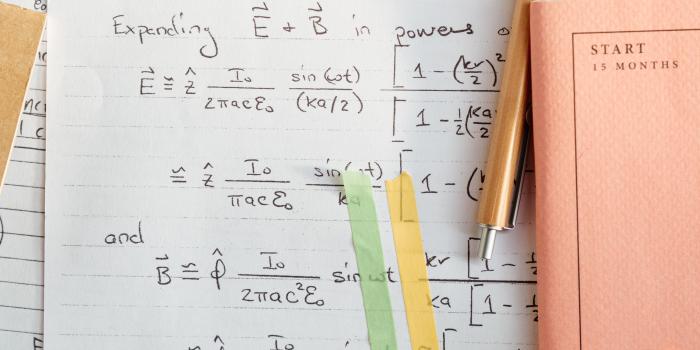 Expanding E⃗ + B⃗ in powers
E⃗ ≅ ẑ I₀/(2πacε₀) sin(ωt)/(ka/2) [1 - (kr/2)²
[1 - ½(ka/2)
≅ ẑ I₀/(πacε₀) sin(ωt)/ka [1 - (
and
B⃗ ≅ φ̂ I₀/(2πac²ε₀) sin ωt kr/ka [1 - ½
[1 - ½
START
15 MONTHS